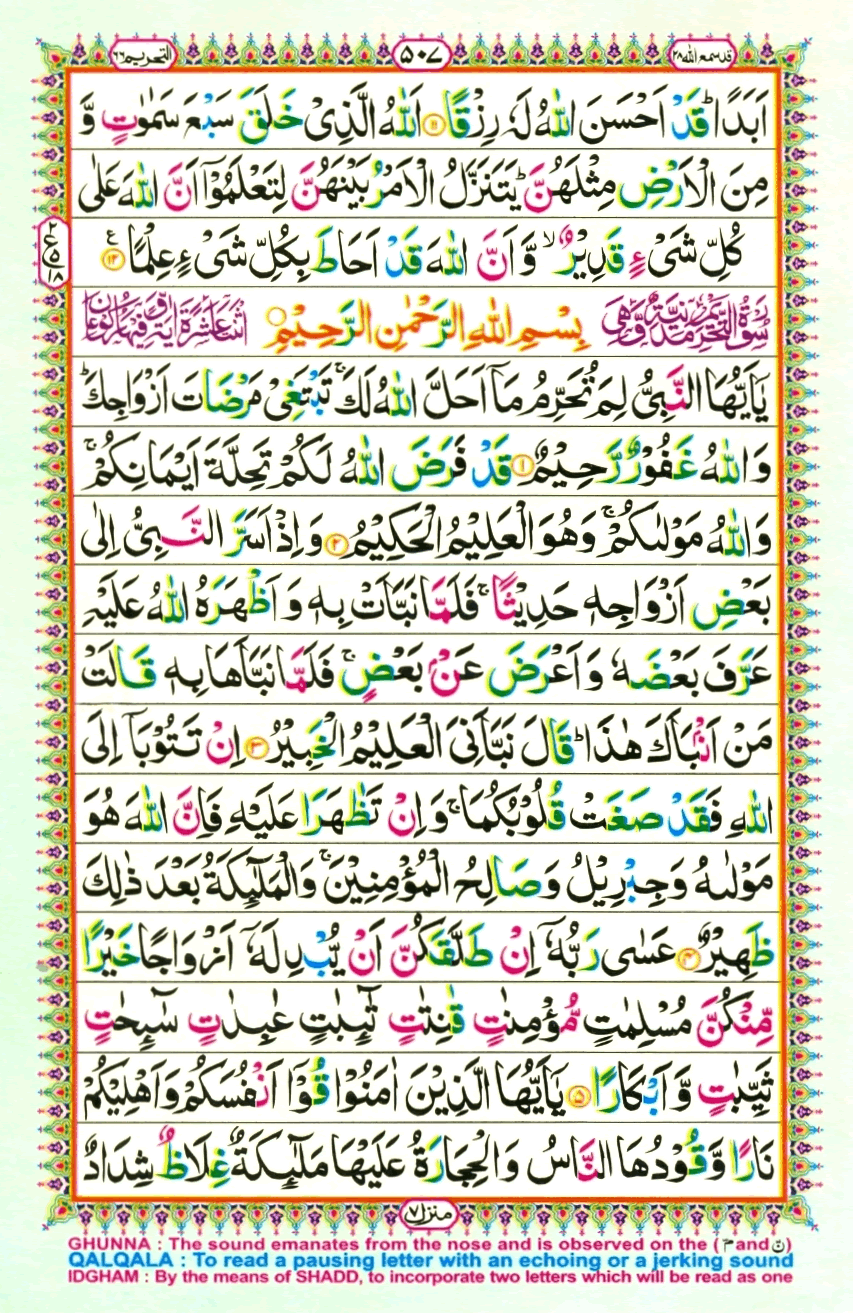 قد سمع الله ۲۸
۵۰۷
التحريم ۶۶
اَبَدًا ؕ قَدْ اَحْسَنَ اللّٰهُ لَهٗ رِزْقًا ۝۱۱ اَللّٰهُ الَّذِیْ خَلَقَ سَبْعَ سَمٰوٰتٍ وَّ
مِنَ الْاَرْضِ مِثْلَهُنَّ ؕ یَتَنَزَّلُ الْاَمْرُ بَیْنَهُنَّ لِتَعْلَمُوْۤا اَنَّ اللّٰهَ عَلٰی
كُلِّ شَیْءٍ قَدِیْرٌ ۙ وَّ اَنَّ اللّٰهَ قَدْ اَحَاطَ بِكُلِّ شَیْءٍ عِلْمًا ۝۱۲ ع
۲ ع ۵ ۱۸
سُوْرَةُ التَّحْرِيْمِ مَدَنِيَّةٌ وَّهِيَ بِسْمِ اللّٰهِ الرَّحْمٰنِ الرَّحِیْمِ ۝ اثْنَتَا عَشْرَةَ اٰيَةً وَّفِيْهَا رُكُوْعَانِ
یٰۤاَیُّهَا النَّبِیُّ لِمَ تُحَرِّمُ مَاۤ اَحَلَّ اللّٰهُ لَكَ ۚ تَبْتَغِیْ مَرْضَاتَ اَزْوَاجِكَ ؕ
وَ اللّٰهُ غَفُوْرٌ رَّحِیْمٌ ۝۱ قَدْ فَرَضَ اللّٰهُ لَكُمْ تَحِلَّةَ اَیْمَانِكُمْ ۚ
وَ اللّٰهُ مَوْلٰىكُمْ ۚ وَ هُوَ الْعَلِیْمُ الْحَكِیْمُ ۝۲ وَ اِذْ اَسَرَّ النَّبِیُّ اِلٰی
بَعْضِ اَزْوَاجِهٖ حَدِیْثًا ۚ فَلَمَّا نَبَّاَتْ بِهٖ وَ اَظْهَرَهُ اللّٰهُ عَلَیْهِ
عَرَّفَ بَعْضَهٗ وَ اَعْرَضَ عَنْۢ بَعْضٍ ۚ فَلَمَّا نَبَّاَهَا بِهٖ قَالَتْ
مَنْ اَنْۢبَاَكَ هٰذَا ؕ قَالَ نَبَّاَنِیَ الْعَلِیْمُ الْخَبِیْرُ ۝۳ اِنْ تَتُوْبَاۤ اِلَی
اللّٰهِ فَقَدْ صَغَتْ قُلُوْبُكُمَا ۚ وَ اِنْ تَظٰهَرَا عَلَیْهِ فَاِنَّ اللّٰهَ هُوَ
مَوْلٰىهُ وَ جِبْرِیْلُ وَ صَالِحُ الْمُؤْمِنِیْنَ ۚ وَ الْمَلٰٓىِٕكَةُ بَعْدَ ذٰلِكَ
ظَهِیْرٌ ۝۴ عَسٰی رَبُّهٗۤ اِنْ طَلَّقَكُنَّ اَنْ یُّبْدِلَهٗۤ اَزْوَاجًا خَیْرًا
مِّنْكُنَّ مُسْلِمٰتٍ مُّؤْمِنٰتٍ قٰنِتٰتٍ تٰٓىِٕبٰتٍ عٰبِدٰتٍ سٰٓىِٕحٰتٍ
ثَیِّبٰتٍ وَّ اَبْكَارًا ۝۵ یٰۤاَیُّهَا الَّذِیْنَ اٰمَنُوْا قُوْۤا اَنْفُسَكُمْ وَ اَهْلِیْكُمْ
نَارًا وَّ قُوْدُهَا النَّاسُ وَ الْحِجَارَةُ عَلَیْهَا مَلٰٓىِٕكَةٌ غِلَاظٌ شِدَادٌ
منزل ۷
GHUNNA : The sound emanates from the nose and is observed on the (مّ and نّ)
QALQALA : To read a pausing letter with an echoing or a jerking sound
IDGHAM : By the means of SHADD, to incorporate two letters which will be read as one